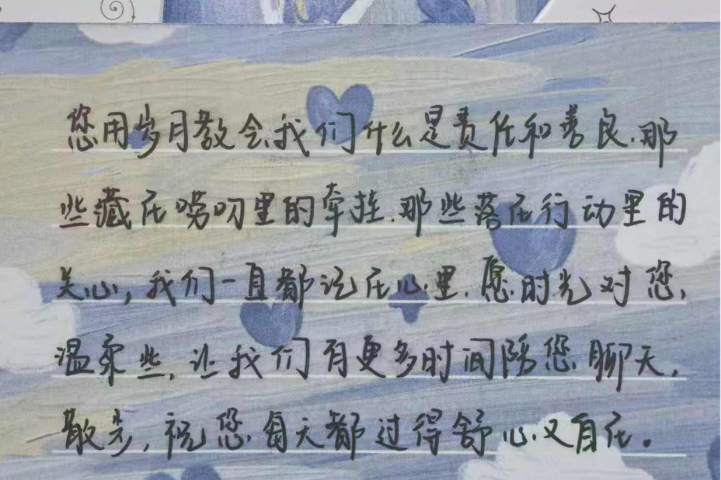 您用岁月教会我们什么是责任和善良.那
些藏在唠叨里的牵挂.那些落在行动里的
关心,我们一直都记在心里.愿时光对您,
温柔些,让我们有更多时间陪您聊天,
散步,祝您每天都过得舒心又自在。